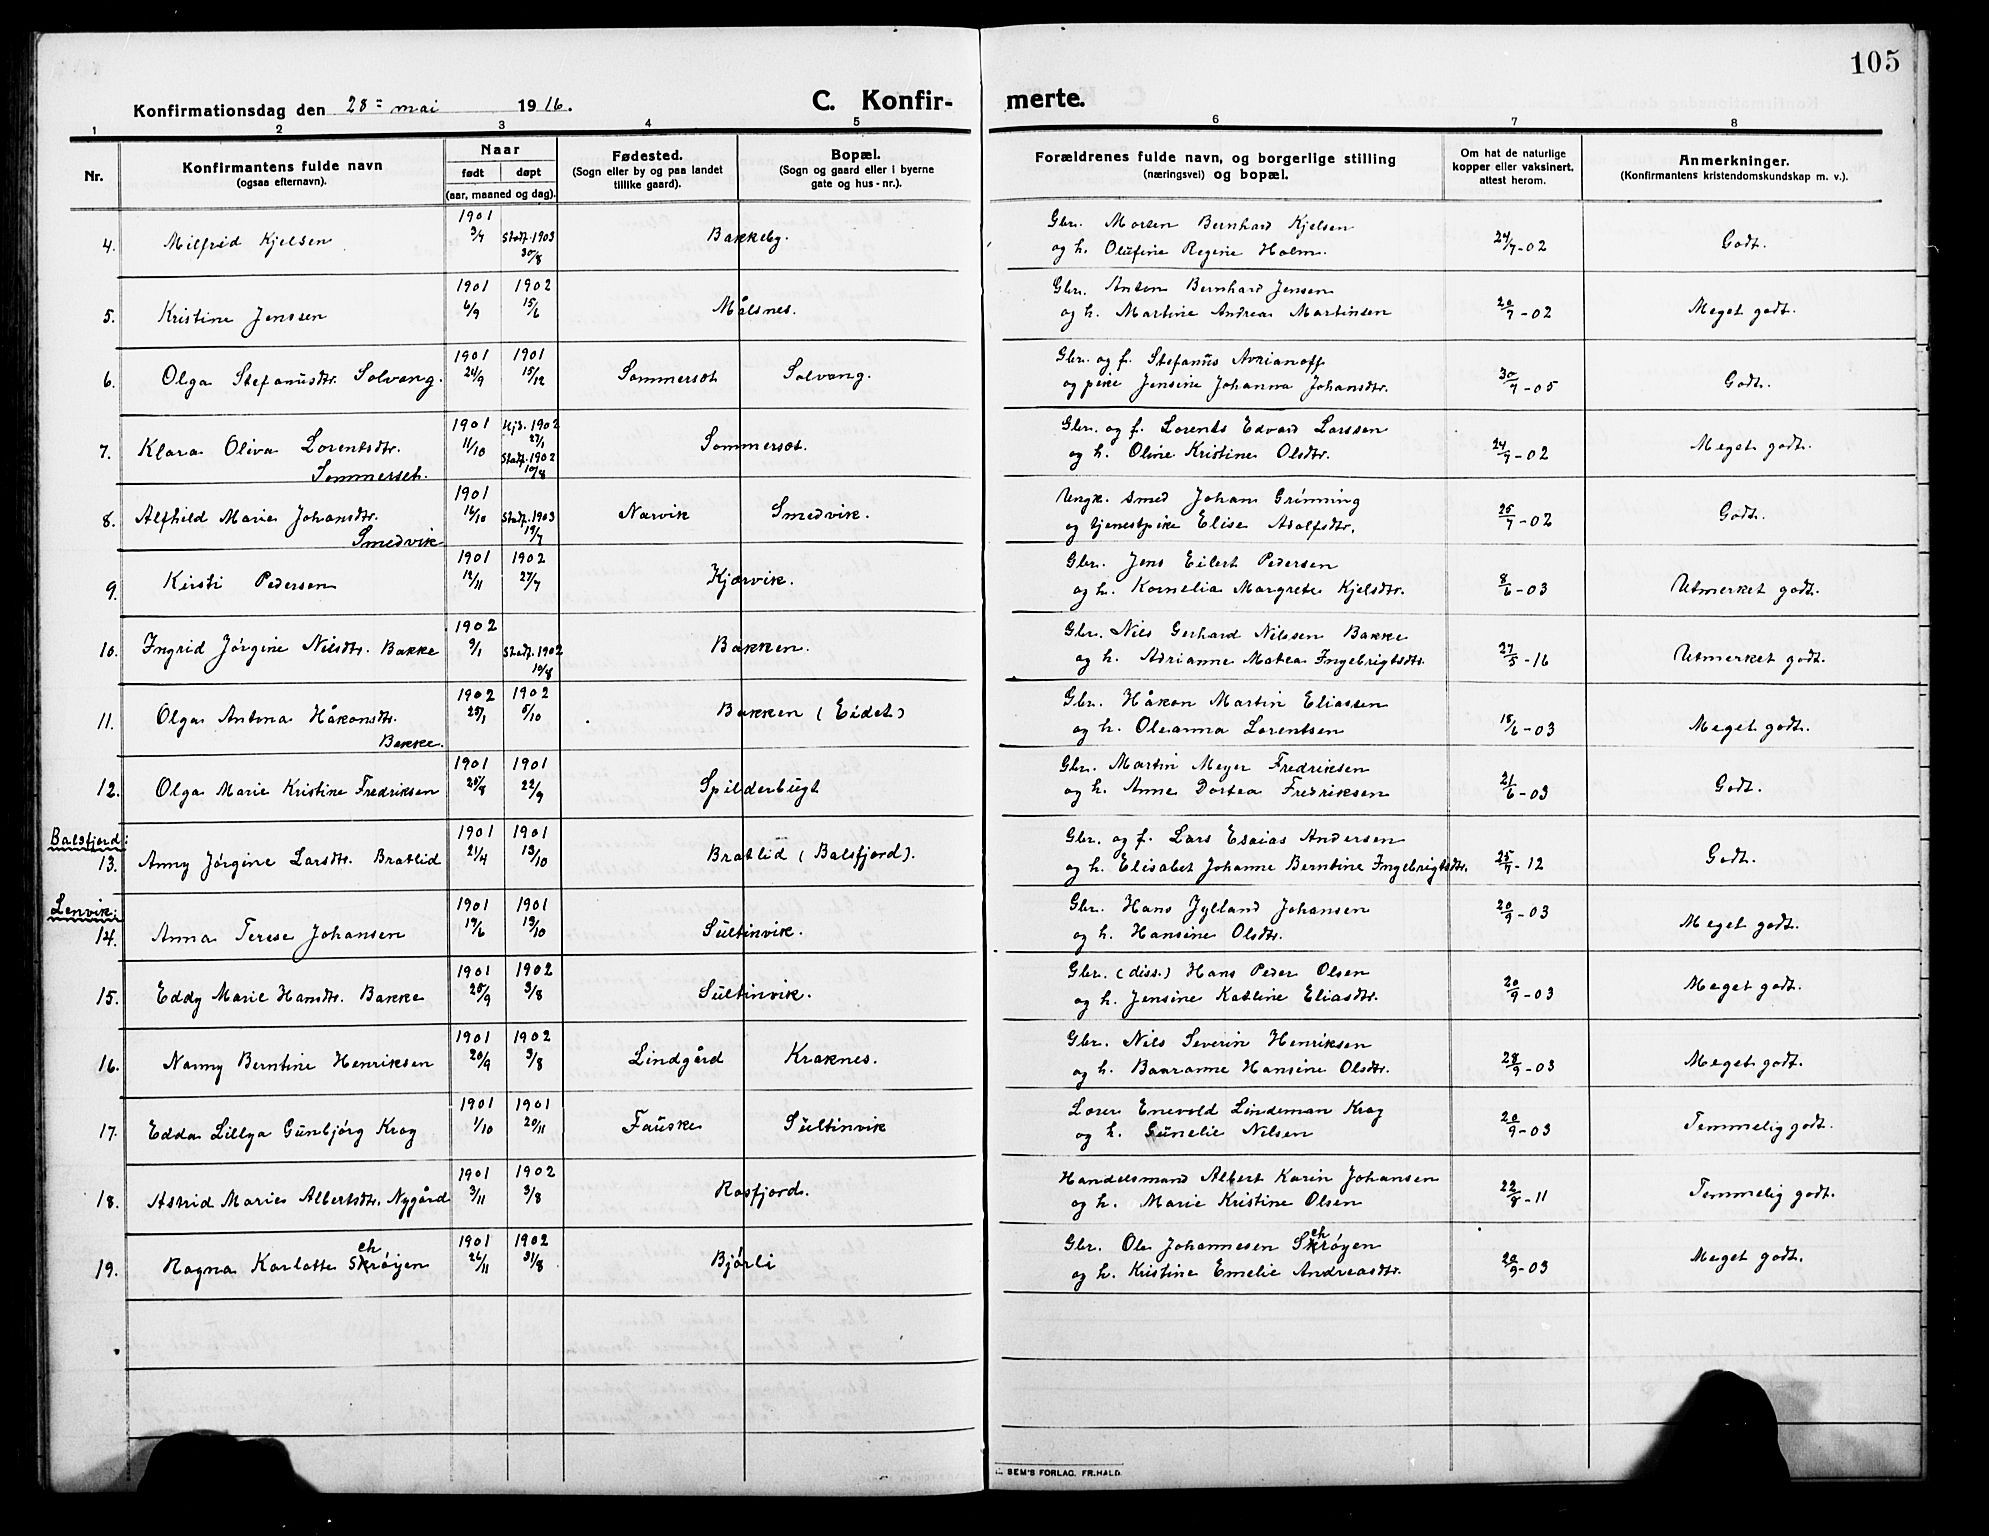 105
Konfirmationsdag den 28= mai 1916.
C. Konfir-
merte.
1 2 3 4 5 6 7 8
Nr.
Konfirmantens fulde navn
(ogsaa efternavn).
Naar
født døpt
(aar, maaned og dag).
Fødested.
(Sogn eller by og paa landet
tillike gaard).
Bopæl.
(Sogn og gaard eller i byerne
gate og hus-nr.).
Forældrenes fulde navn, og borgerlige stilling
(næringsvei) og bopæl.
Om hat de naturlige
kopper eller vaksinert.
attest herom.
Anmerkninger.
(Konfirmantens kristendomskundskap m. v.).
1901 Gbr. Morten Bernhard Kjelsen
4. Milfrid Kjelsen 3/7 Stadf. 1903 30/8 Bakkeby. 24/7-02 Godt.
og h. Olufine Regine Holm.
1901 1902 Gbr. Anton Bernhard Jensen
5. Kristine Jenssen 6/9 15/6 Målsnes. 20/7-02 Meget godt.
og h. Martine Andrea Martinsen
1901 1901 Gbr. og f. Stefanus Avrianoff
6. Olga Stefanusdtr. Solvang. 24/9 15/12 Sommerset Solvang. 30/7-05 Godt.
og pike Jensine Johanna Johansdtr.
1901 Hjd. 1902 27/1 Gbr. og f. Lorents Edvard Larssen
7. Klara Oliva Lorentsdtr. 11/10 Stadf. 1902 10/8 Sommerset. 24/7-02 Meget godt.
Sommerset. og h. Oline Kristine Olsdtr.
1901 Ungk. smed Johan Grønning
8. Alfhild Marie Johansdtr. 16/10 Stadf. 1903 19/7 Narvik Smedvik. 25/7-02 Godt.
Smedvik og tjenestpike Elise Adolfsdtr.
1901 1902 Gbr. Jens Eilert Pedersen
9. Kirsti Pedersen 12/11 27/7 Kjærvik. 8/6-03 Utmerket godt.
og h. Kornelia Margrete Kjelsdtr.
1902 Gbr. Nils Gerhard Nilssen Bakke
10. Ingrid Jørgine Nilsdtr. Bakke 9/1 Stadf. 1902 10/8 Bakken. 27/5-16 Utmerket godt.
og h. Adrianne Matea Ingebrigtsdtr.
1902 1902 Gbr. Håkon Martin Eliassen
11. Olga Antina Håkonsdtr. 25/1 5/10 Bakken (Eidet) 15/6-03 Meget godt.
Bakke. og h. Oleanna Lorentsen
1901 1901 Gbr. Martin Meyer Fredriksen
12. Olga Marie Kristine Fredriksen 25/8 22/9 Spilderbugt 21/6-03 Godt.
og h. Anne Dortea Fredriksen
Balsfjord: 1901 1901 Gbr. og f. Lars Esaias Andersen
13. Anny Jørgine Larsdtr. Bratlid 21/4 13/10 Bratlid (Balsfjord). 25/7-12 Godt.
og h. Elisabet Johanne Berntine Ingebrigtsdtr.
Lenvik: 1901 1901 Gbr. Hans Jylland Johansen
14. Anna Terese Johansen 19/6 13/10 Sultinvik. 20/9-03 Meget godt.
og h. Hansine Olsdtr.
1901 1902 Gbr. (diss.) Hans Peder Olsen
15. Eddy Marie Hansdtr. Bakke 25/9 3/8 Sultinvik. 20/9-03 Meget godt.
og h. Jensine Katline Eliasdtr.
1901 1902 Gbr. Nils Severin Henriksen
16. Nanny Berntine Henriksen 20/9 3/8 Lindgård Kraknes. 28/9-03 Meget godt.
og h. Baaranne Hansine Olsdtr.
1901 1901 Lærer Enevold Lindeman Krag
17. Edda Lillya Gunbjørg Krag 1/10 20/11 Fauske Sultinvik 20/9-03 Temmelig godt.
og h. Gunelie Nilsen
1901 1902 Handelsmand Albert Karin Johansen
18. Astrid Marie Albertsdtr. Nygård 3/11 3/8 Rosfjord. 22/8-11 Temmelig godt.
og h. Marie Kristine Olsen
1901 1902 Gbr. Ole Johannesen Skrøyen
19. Ragna Karlotte Skrøyen 26/11 31/8 Bjørli 20/9-03 Meget godt.
og h. Kristine Emelie Andreasdtr.
SEM'S FORLAG, FR.HALD.